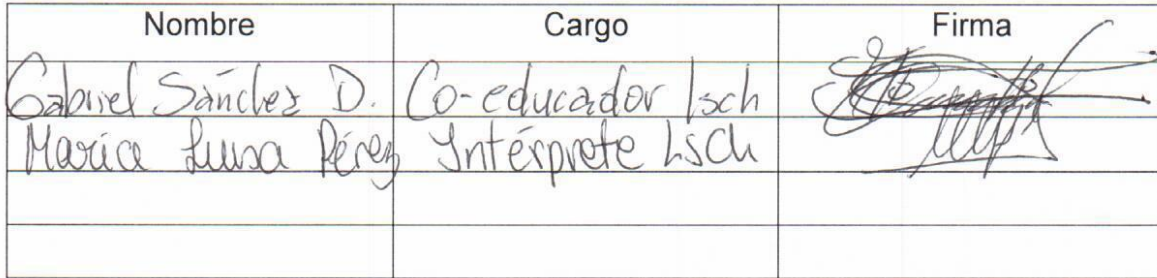 Nombre Cargo Firma
Gabriel Sánchez D. Co-educador Lsch
María Luisa Pérez Intérprete LSCh